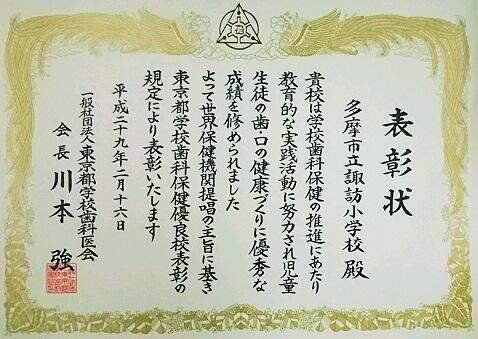 表彰状
多摩市立諏訪小学校 殿
貴校は学校歯科保健の推進にあたり
教育的な実践活動に努力され児童
生徒の歯・口の健康づくりに優秀な
成績を修められました
よって世界保健機関提唱の主旨に基き
東京都学校歯科保健優良校表彰の
規定により表彰いたします
平成二十九年二月十六日
一般社団法人東京都学校歯科医会
会長 川本 強